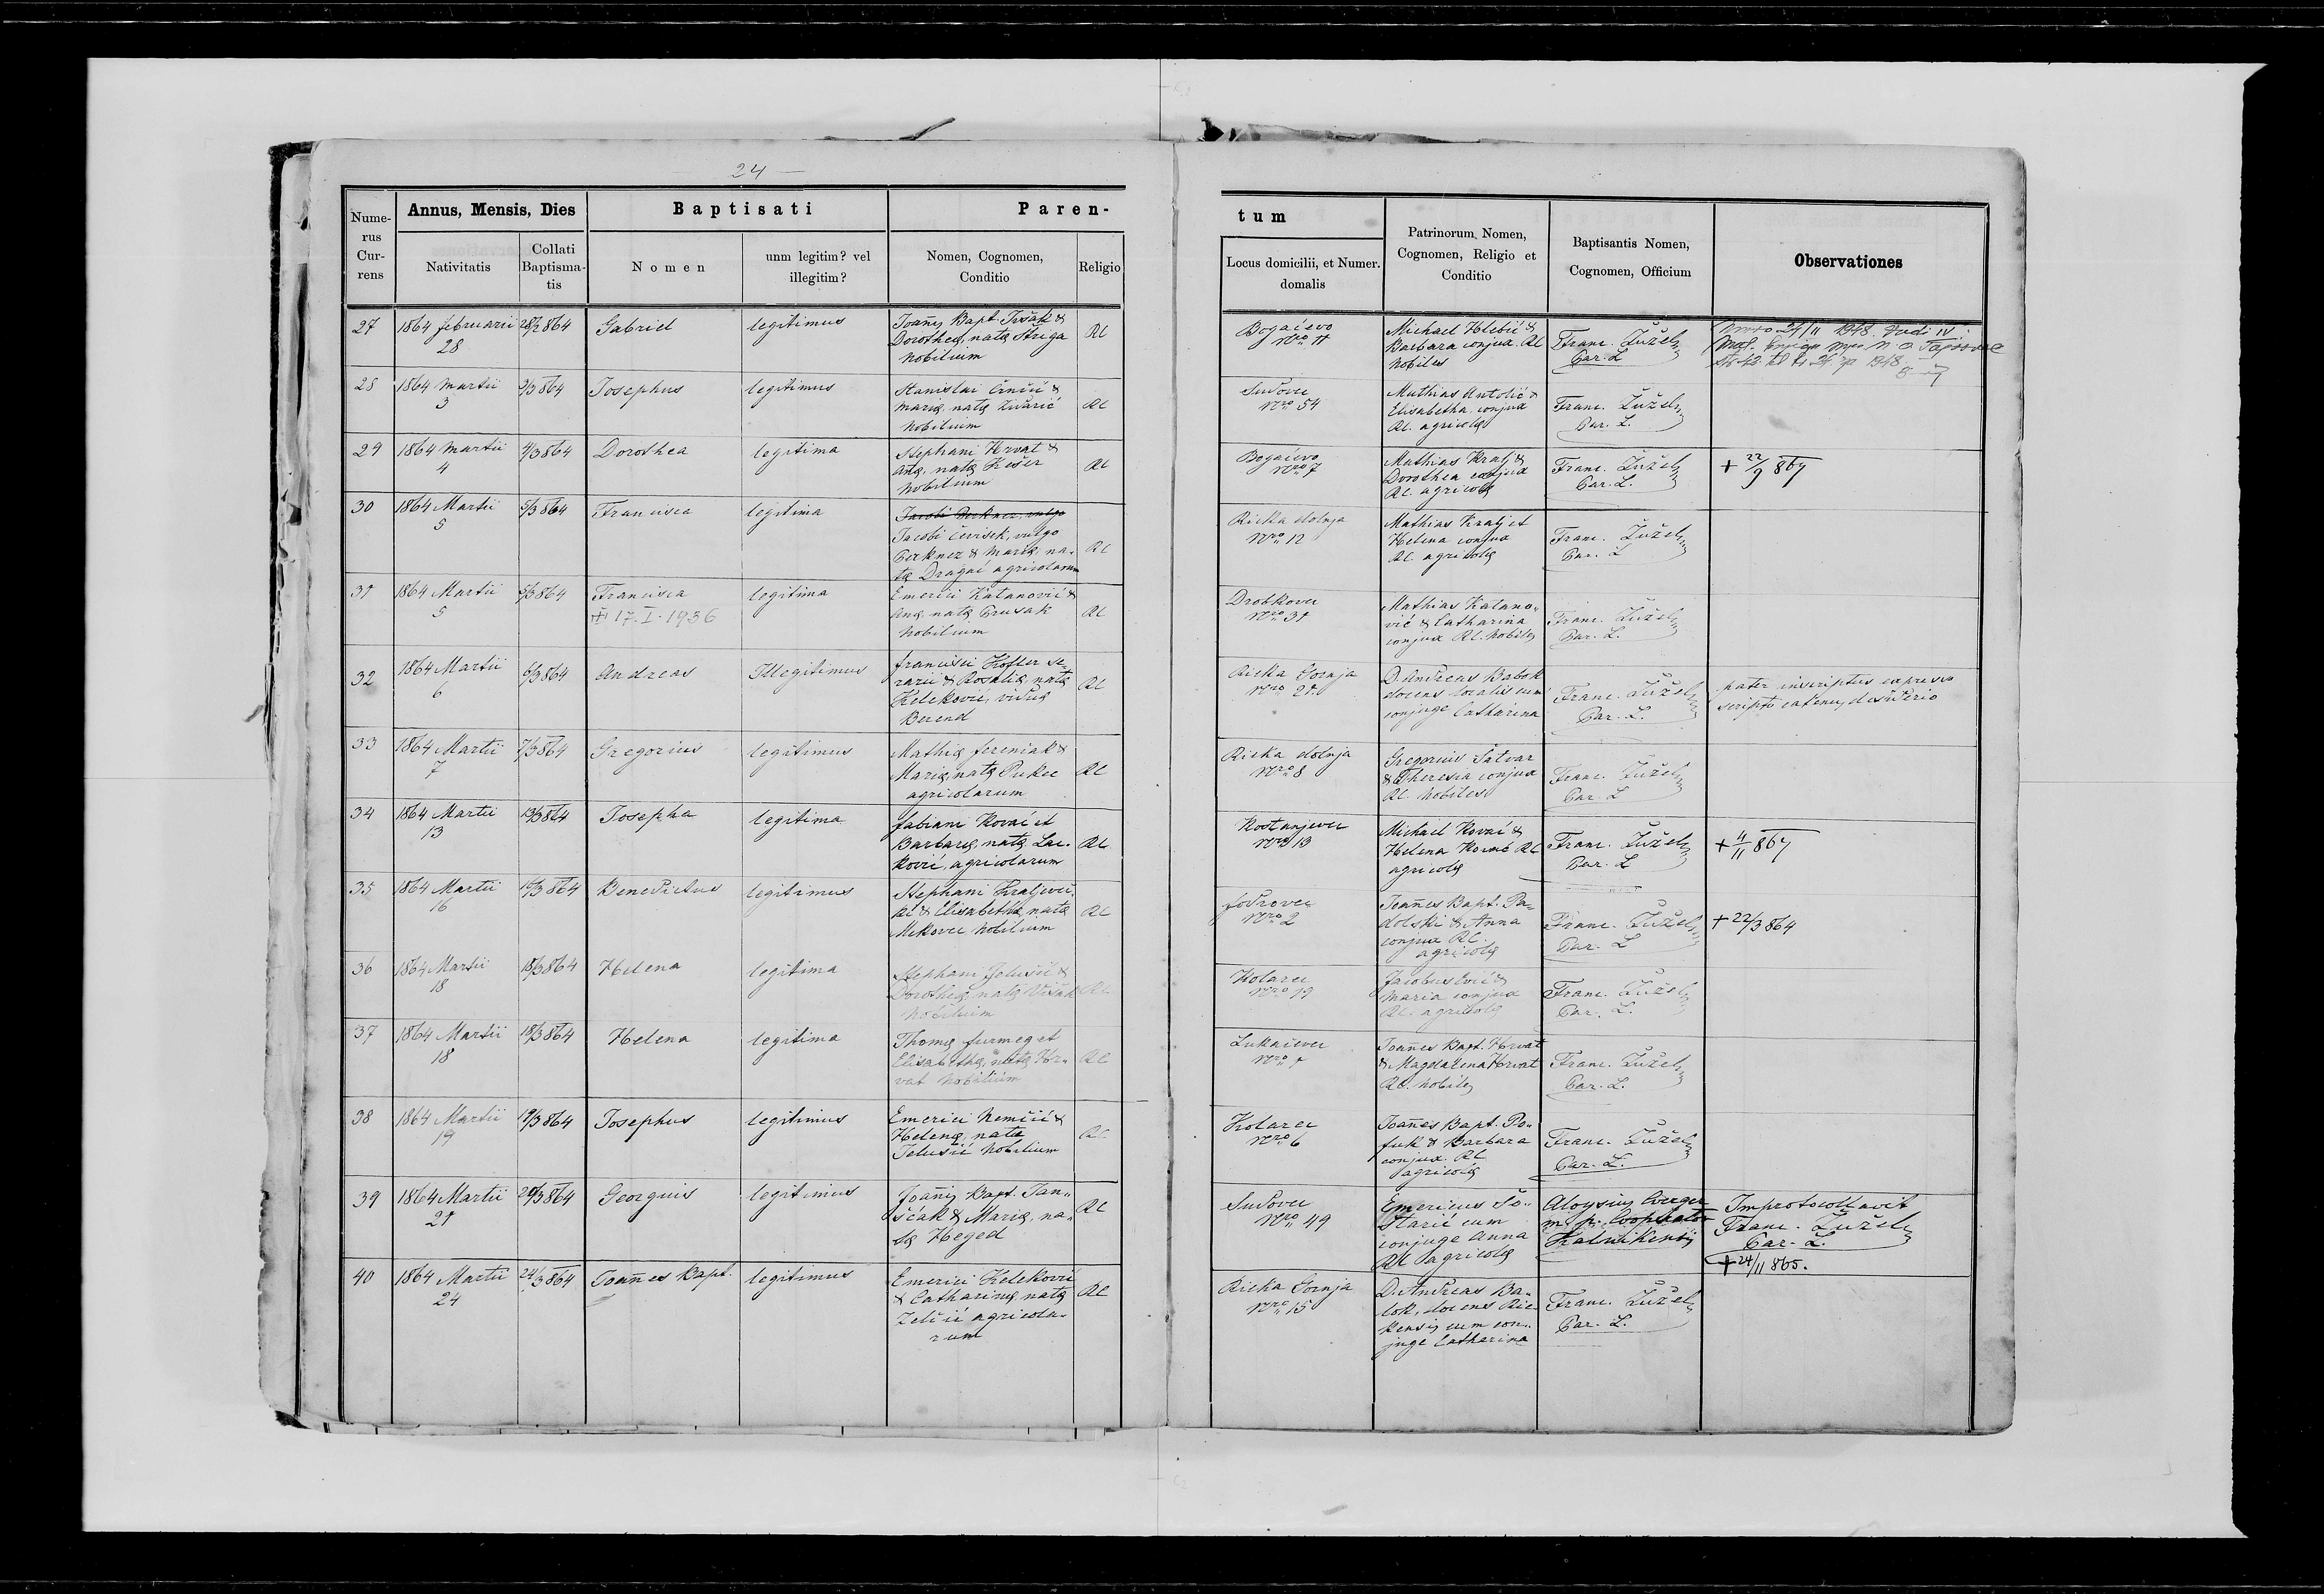 — 24 —
Numerus Currens
Annus, Mensis, Dies
Baptisati
Paren-
tum
Patrinorum Nomen, Cognomen, Religio et Conditio
Baptisantis Nomen, Cognomen, Officium
Observationes
Nativitatis
Collati Baptismatis
Nomen
unm legitim? vel illegitim?
Nomen, Cognomen, Conditio
Religio
Locus domicilii, et Numer. domalis
27
1864 februarii
28
28/2 864
Gabriel
legitimus
Joañis Bapt. Tršak &
Dorotheæ, natæ Striga
Nobilium
RC
Bogačevo
Nro 11
Michael Hlebić &
Barbara conjux. RC
Nobiles
Franc. Žužel
Par. L.
1948
28
1864 Martii
3
3/3 864
Josephus
legitimus
Stanislai Črnčić &
Mariæ, natæ Živarić
Nobilium
RC
Sudovec
Nro 54
Mathias Antolić &
Elisabetha conjux
RC. agricolæ
Franc. Žužel
Par. L.
29
1864 Martii
4
4/3 864
Dorothea
legitima
Stephani Hrvat &
Añæ, natæ Kešer
Nobilium
RC
Bogačevo
Nro 7
Mathias Kralj &
Dorothea conjux
RC. agricolæ
Franc. Žužel
Par. L.
+ 22/9 867
30
1864 Martii
5
5/3 864
Francisca
legitima
Jacobi Perkner, vulgo
Jacobi Čivisek, vulgo
Perkner & Mariæ, na-
tæ Dragač agricolarum
RC
Rieka dolnja
Nro 12
Mathias Kralj et
Helena conjux
RC. agricolæ
Franc. Žužel
Par. L.
31
1864 Martii
5
5/3 864
Francisca
+ 17. I. 1936
legitima
Emerici Katanović &
Anæ, natæ Prusak
Nobilium
RC
Drobkovec
Nro 31
Mathias Katano-
vić & Catharina
conjux RC. Nobiles
Franc. Žužel
Par. L.
32
1864 Martii
6
6/3 864
Andreas
Illegitimus
Francisci Kofler se-
rarii & Rosaliæ, natæ
Keleković, viduæ
Berend
RC
Rieka Gornja
Nro 21
D. Andreas Babok
docens localis cum
conjuge Catharina
Franc. Žužel
Par. L.
pater inscriptus expresso
scripto eatenus desiderio
33
1864 Martii
7
7/3 864
Gregorius
legitimus
Mathiæ Ferenčak &
Mariæ, natæ Pukec
agricolarum
RC
Rieka dolnja
Nro 8
Gregorius Šatvar
& Theresia conjux
RC. Nobiles
Franc. Žužel
Par. L
34
1864 Martii
13
13/3 864
Josepha
legitima
Fabiani Kovač et
Barbaræ, natæ Lac-
ković, agricolarum
RC
Kostanjevec
Nro 13
Michael Kovač &
Helena Kovač RC
agricolæ
Franc. Žužel
Par. L
+ 4/11 867
35
1864 Martii
16
16/3 864
Benedictus
legitimus
Stephani Kraljevec
RC & Elisabethæ, natæ
Mikovec Nobilium
RC
Fodrovec
Nro 2
Joañes Bapt. Po-
dolski & Anna
conjux RC.
agricolæ
Franc. Žužel
Par. L
+ 22/3 864
36
1864 Martii
18
18/3 864
Helena
legitima
Stephani Jelušić &
Dorotheæ, natæ Višak
Nobilium
RC
Kolarec
Nro 19
Jacobus Ević &
Maria conjux
RC. agricolæ
Franc. Žužel
Par. L.
37
1864 Martii
18
18/3 864
Helena
legitima
Thomæ Furmeg et
Elisabethæ, natæ Hr-
vat Nobilium
RC
Lukačevec
Nro 1
Joañes Bapt. Hrvat
& Magdalena Horvat
RC. Nobiles
Franc. Žužel
Par. L.
38
1864 Martii
19
19/3 864
Josephus
legitimus
Emerici Nemčić &
Helenæ, natæ
Jelušić Nobilium
RC
Kolarec
Nro 6
Joañes Bapt. Po-
fuk & Barbara
conjux. RC
agricolæ
Franc. Žužel
Par. L.
39
1864 Martii
21
21/3 864
Georguis
legitimus
Joañis Bapt. Jan-
ščak & Mariæ, na-
tæ Heged
RC
Sudovec
Nro 49
Emericus Šo-
štarić cum
conjuge Anna
RC agricolæ
Aloysius
m. p. Cooperator
Kalnikensis
Improtocollavit
Franc. Žužel
Par. L.
+ 24/11 865.
40
1864 Martii
24
24/3 864
Joañes Bapt.
legitimus
Emerici Keleković
& Catharinæ, natæ
Zelčić agricola-
rum
RC
Rieka Gornja
Nro 15
D. Andreas Ba-
bok, docens Rie-
kensis cum con-
juge Catharina
Franc. Žužel
Par. L.